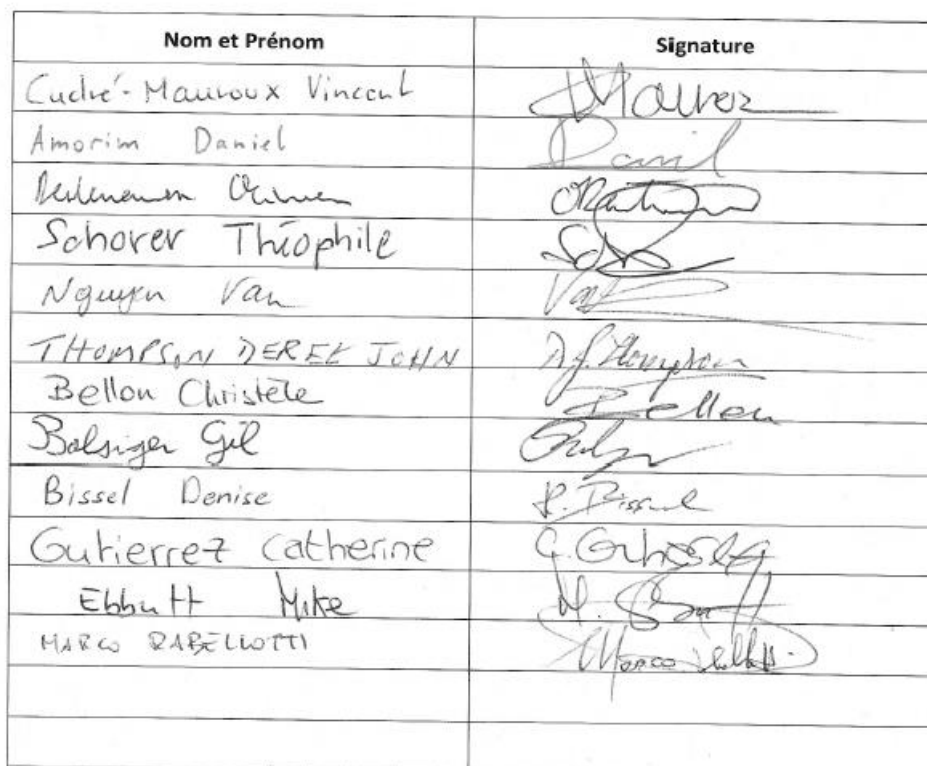 Nom et Prénom Signature
Cudré-Mauroux Vincent Mauroux
Amorim Daniel Daniel
Schorer Théophile
Nguyen Van Van
THOMPSON DEREK JOHN D.J. Thompson
Bellon Christèle Bellon
Balsiger Gil
Bissel Denise D. Bissel
Gutierrez Catherine C. Gutierrez
Ebbutt Mike M.
MARCO RABELLOTTI Marco